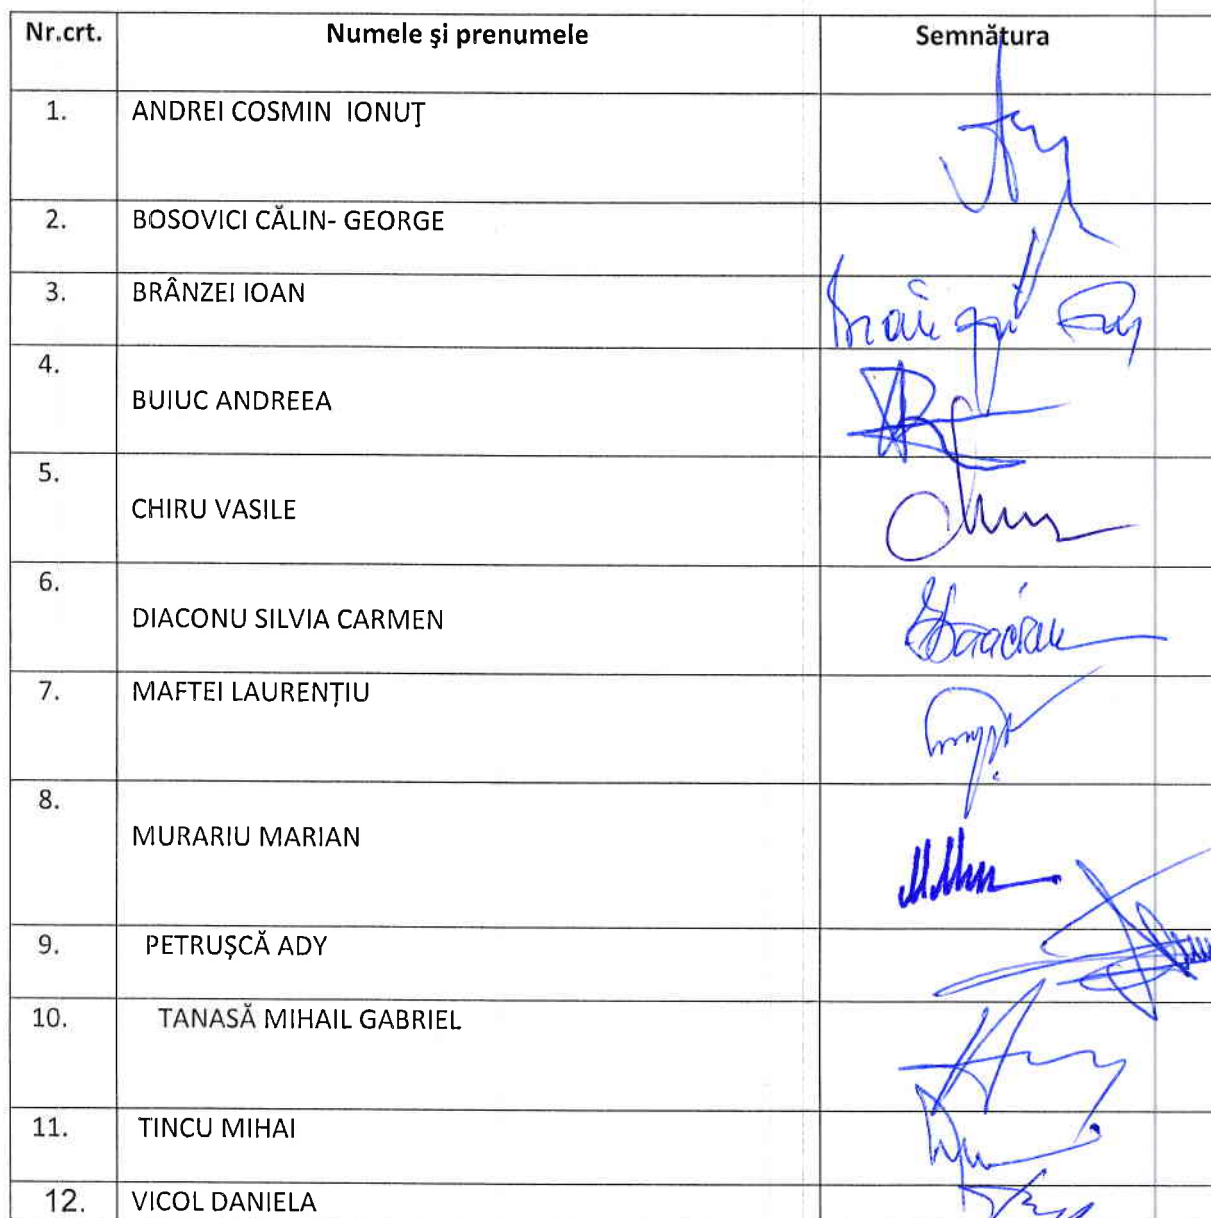 Nr.crt. Numele şi prenumele Semnătura
1. ANDREI COSMIN IONUŢ
2. BOSOVICI CĂLIN- GEORGE
3. BRÂNZEI IOAN
4. BUIUC ANDREEA
5. CHIRU VASILE
6. DIACONU SILVIA CARMEN
7. MAFTEI LAURENȚIU
8. MURARIU MARIAN
9. PETRUŞCĂ ADY
10. TANASĂ MIHAIL GABRIEL
11. TINCU MIHAI
12. VICOL DANIELA